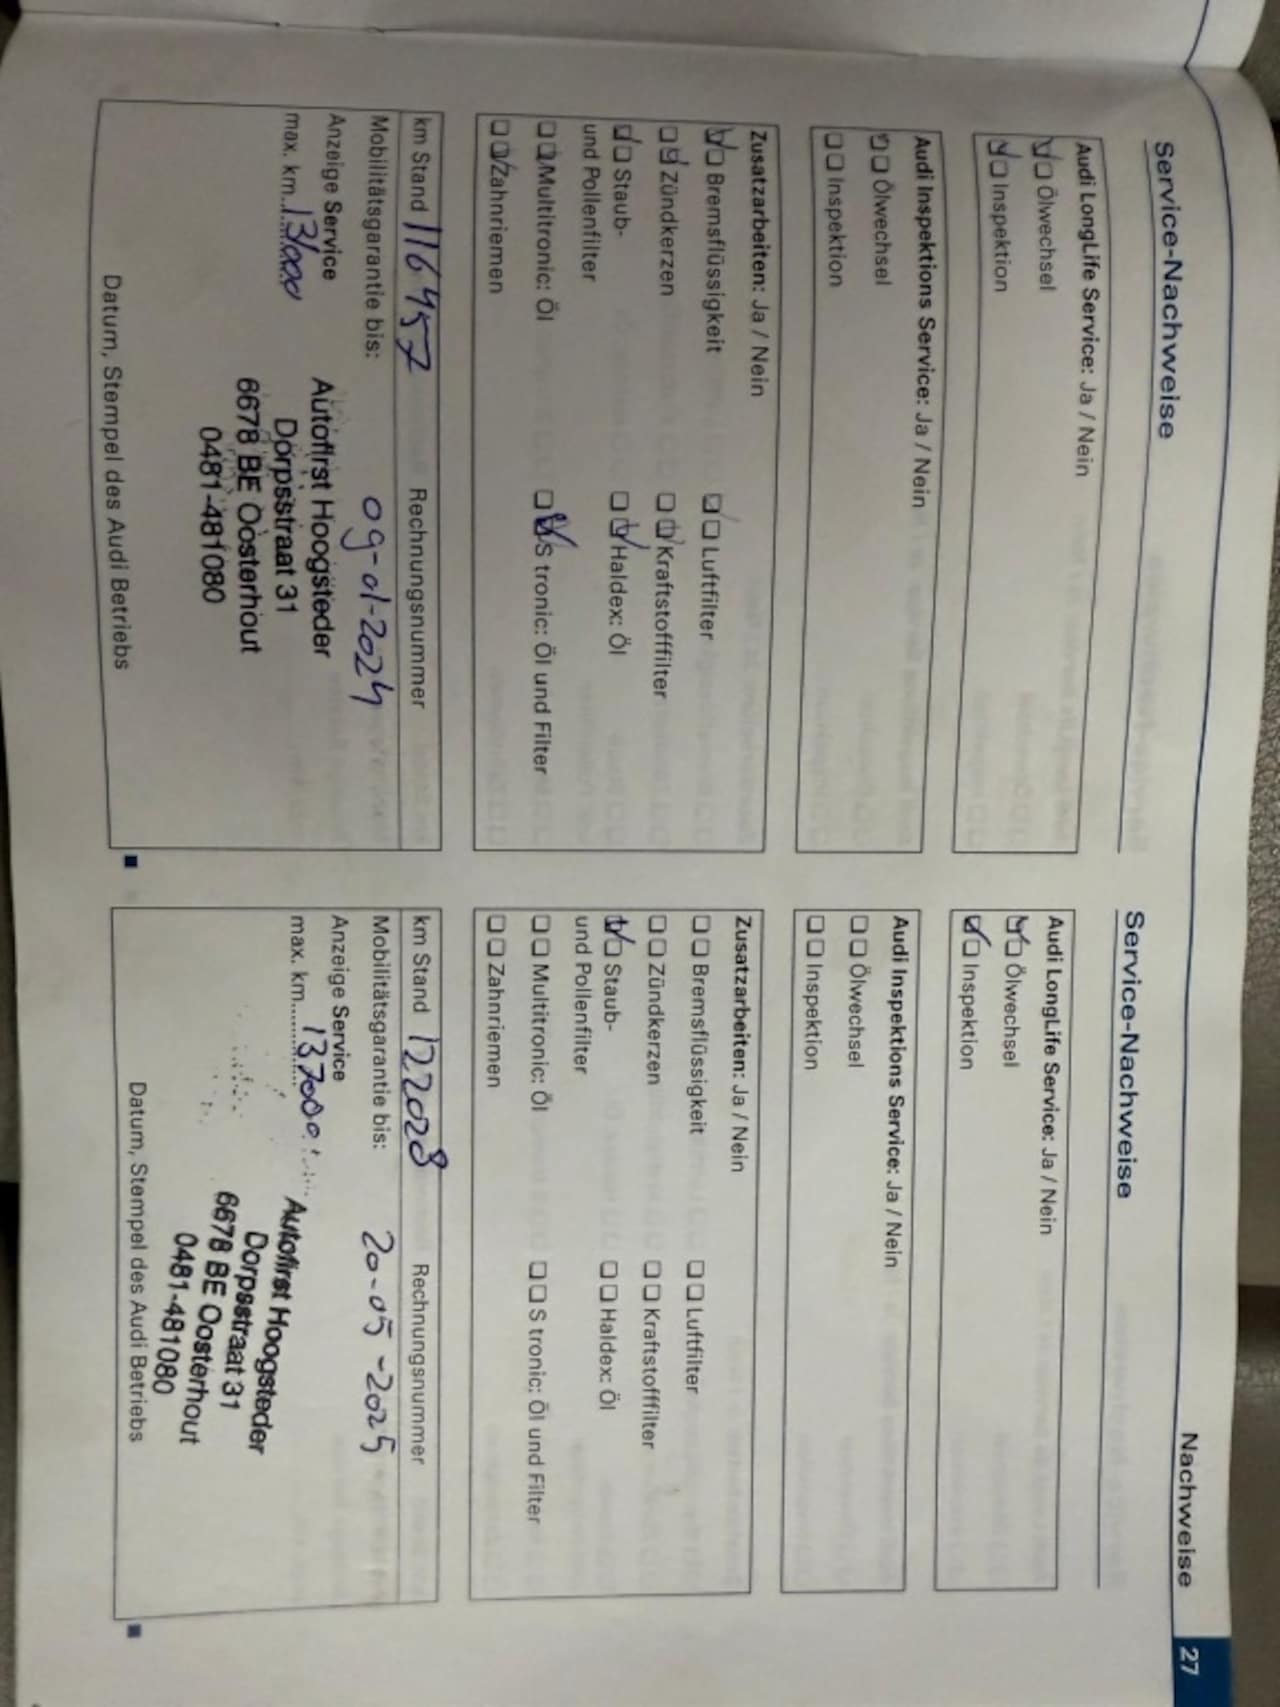 Nachweise 27
Service-Nachweise
Audi LongLife Service: Ja / Nein
Ölwechsel
Inspektion
Audi Inspektions Service: Ja / Nein
Ölwechsel
Inspektion
Zusatzarbeiten: Ja / Nein
Bremsflüssigkeit Luftfilter
Zündkerzen Kraftstofffilter
Staub- Haldex: Öl
und Pollenfilter
Multitronic: Öl S tronic: Öl und Filter
Zahnriemen
km Stand 116457 Rechnungsnummer
Mobilitätsgarantie bis: 09-01-2024
Anzeige Service
max. km 131000
Autofirst Hoogsteder
Dorpsstraat 31
6678 BE Oosterhout
0481-481080
Datum, Stempel des Audi Betriebs
Service-Nachweise
Audi LongLife Service: Ja / Nein
Ölwechsel
Inspektion
Audi Inspektions Service: Ja / Nein
Ölwechsel
Inspektion
Zusatzarbeiten: Ja / Nein
Bremsflüssigkeit Luftfilter
Zündkerzen Kraftstofffilter
Staub- Haldex: Öl
und Pollenfilter
Multitronic: Öl S tronic: Öl und Filter
Zahnriemen
km Stand 122028 Rechnungsnummer
Mobilitätsgarantie bis: 20-05-2025
Anzeige Service
max. km 137000
Autofirst Hoogsteder
Dorpsstraat 31
6678 BE Oosterhout
0481-481080
Datum, Stempel des Audi Betriebs